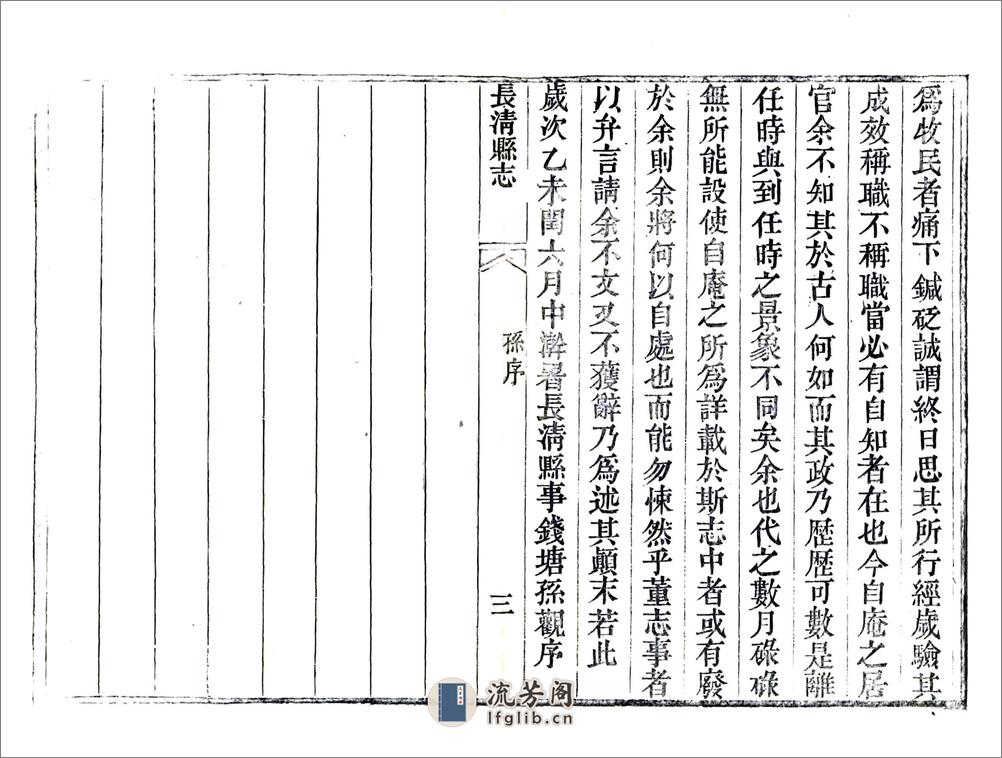 爲牧民者痛下鍼砭誠謂終日思其所行經歲驗其
成效稱職不稱職當必有自知者在也今自庵之居
官余不知其於古人何如而其政乃歷歷可數是離
任時與到任時之景象不同矣余也代之數月碌碌
無所能設使自庵之所爲詳載於斯志中者或有廢
於余則余將何以自處也而能勿悚然乎董志事者
以弁言請余不文又不獲辭乃爲述其顚末若此
歲次乙未閏六月中澣署長淸縣事錢塘孫觀序
長淸縣志
孫序
三
流芳阁
lfglib.cn